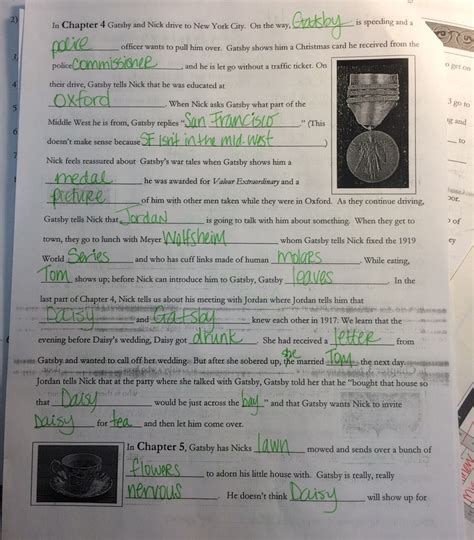 In Chapter 4 Gatsby and Nick drive to New York City. On the way, Gatsby is speeding and a
police officer wants to pull him over. Gatsby shows him a Christmas card he received from the
police commissioner, and he is let go without a traffic ticket. On
their drive, Gatsby tells Nick that he was educated at
Oxford. When Nick asks Gatsby what part of the
Middle West he is from, Gatsby replies "San Francisco." (This
doesn't make sense because SF isn't in the mid-west)
Nick feels reassured about Gatsby's war tales when Gatsby shows him a
medal he was awarded for Valour Extraordinary and a
picture of him with other men taken while they were in Oxford. As they continue driving,
Gatsby tells Nick that Jordan is going to talk with him about something. When they get to
town, they go to lunch with Meyer Wolfsheim whom Gatsby tells Nick fixed the 1919
World Series and who has cuff links made of human molars. While eating,
Tom shows up; before Nick can introduce him to Gatsby, Gatsby leaves. In the
last part of Chapter 4, Nick tells us about his meeting with Jordan where Jordan tells him that
Daisy and Gatsby knew each other in 1917. We learn that the
evening before Daisy's wedding, Daisy got drunk. She had received a letter from
Gatsby and wanted to call off her wedding. But after she sobered up, she married Tom the next day.
Jordan tells Nick that at the party where she talked with Gatsby, Gatsby told her that he "bought that house so
that Daisy would be just across the bay" and that Gatsby wants Nick to invite
Daisy for tea and then let him come over.
In Chapter 5, Gatsby has Nicks lawn mowed and sends over a bunch of
flowers to adorn his little house with. Gatsby is really, really
nervous. He doesn't think Daisy will show up for
2)
3,
4
5
o get on
3 go to
ng and
to
oor.
of
ey